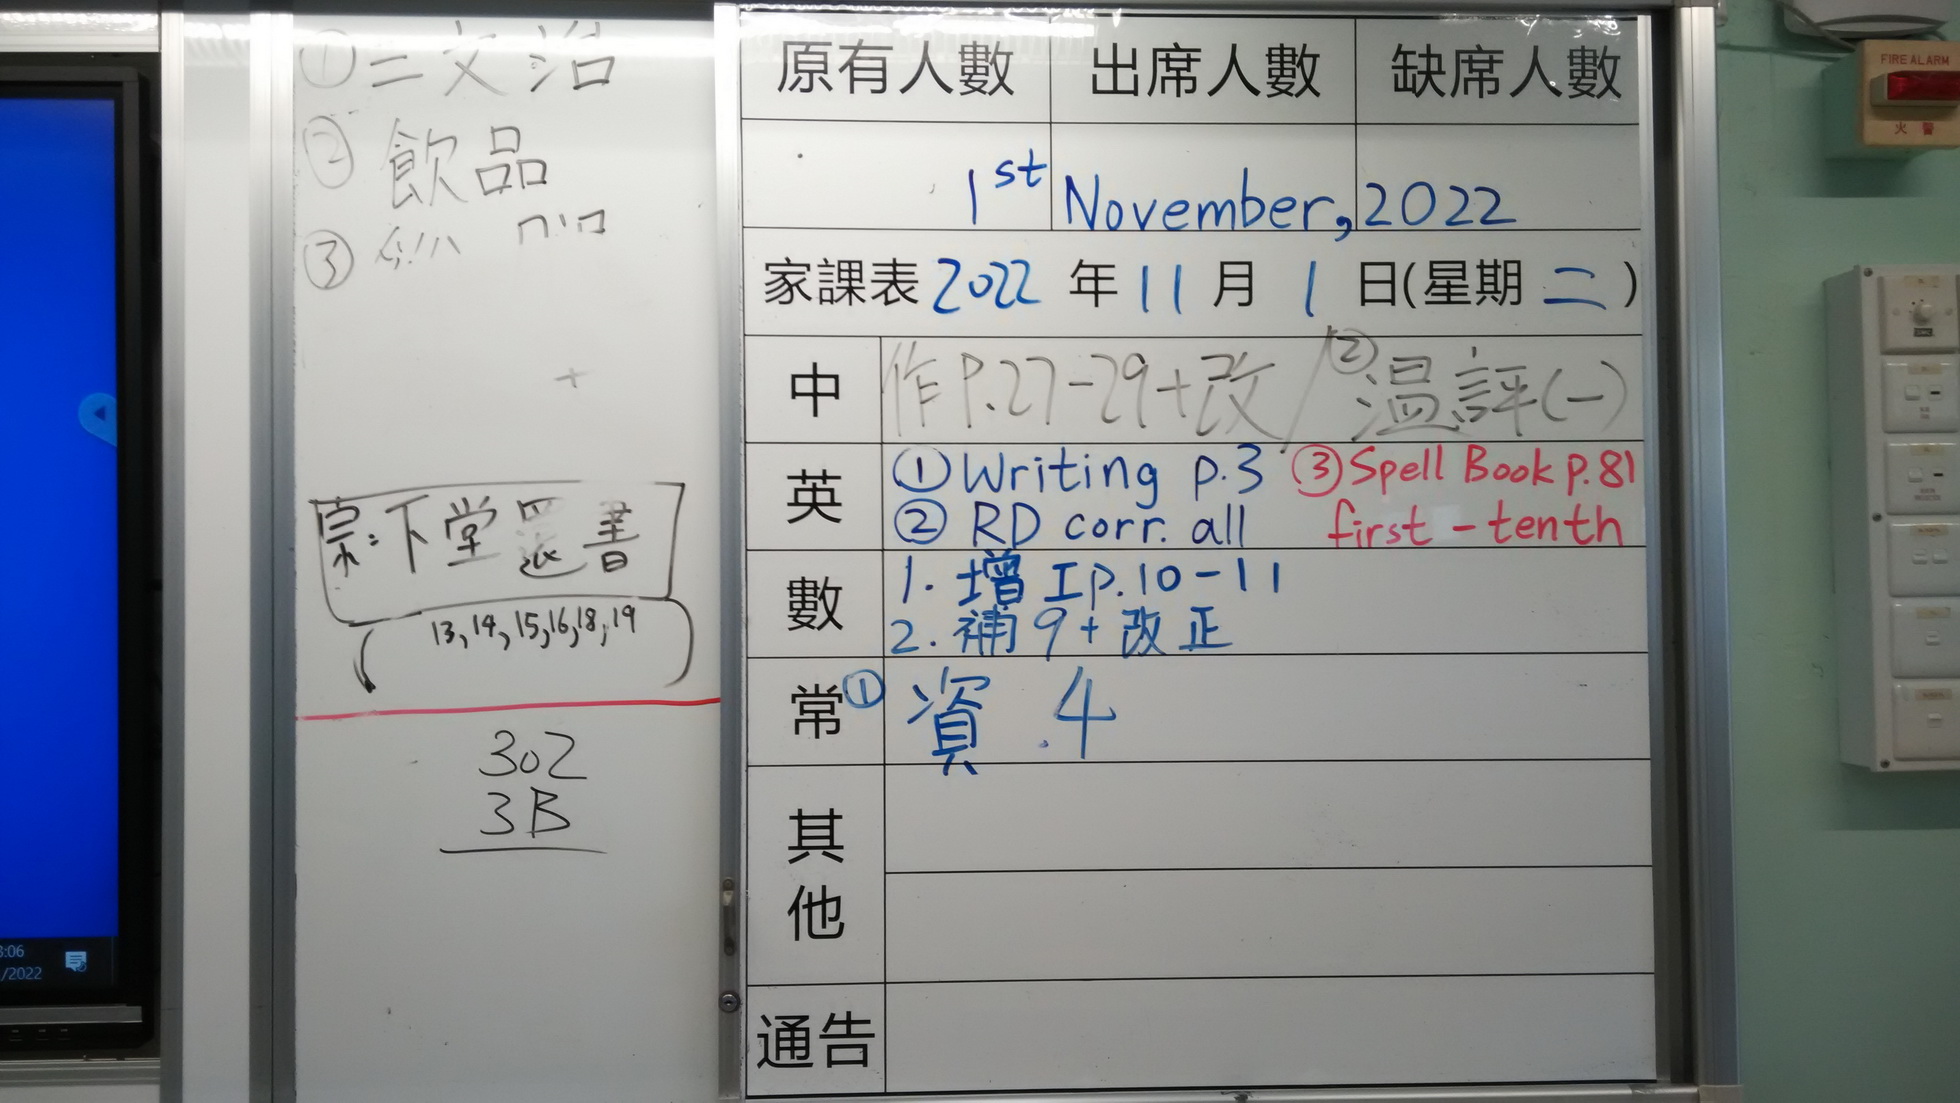 ①三文治
②飲品
③
票:下堂還書
13,14,15,16,18,19
302
3B
原有人數 出席人數 缺席人數
1st November, 2022
家課表 2022 年 11 月 1 日(星期 二)
中 作P.27-29+改/②温評(一)
英 ①Writing p.3 ③Spell Book p.81
②RD corr. all first - tenth
數 1. 增Ip.10-11
2. 補9+改正
常 ①資.4
其他
通告
FIRE ALARM
火警
:06
/2022